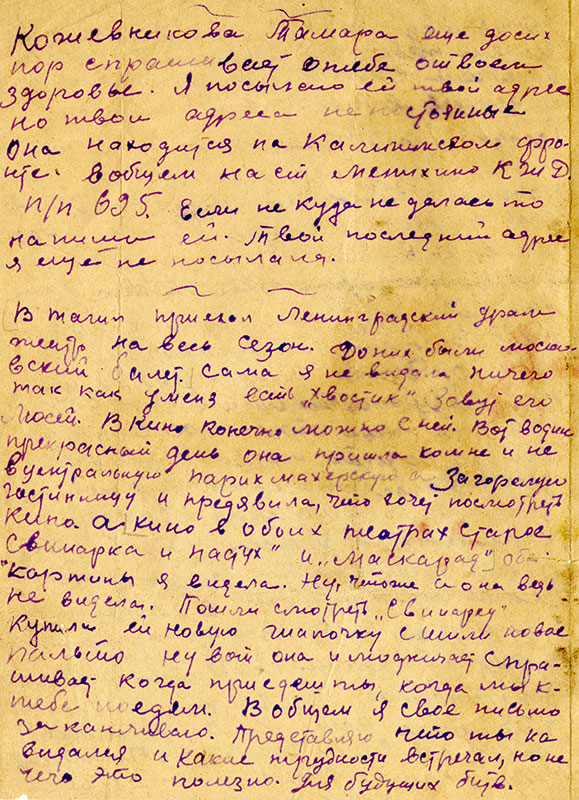 Кожевникова Тамара еще до сих
пор спрашивает о тебе о твоем
здоровье. Я посылаю ей твой адрес
но твои адреса не постоянные
Она находится на Калининском фро-
нте. вобщем на ст
п/п 695. Если не куда не делась то
напиши ей. Твой последний адрес
я еще не посылала.
В тагил приехал Ленинградский драм
театр на весь сезон. До них были моско-
вский балет. Сама я не видала ничего
так как у меня есть „хвостик" Зовут его
Люсей. В кино конечно можно с ней. Вот водин
прекрасный день она пришла комне и не
в центральную парикмахерскую а За горелую
гостиницу и предявила, что хочет посмотреть
кино. А кино в обоих театрах старое
Свинарка и пастух" и „Маскарад" оба
картины я видела. Ну, чтоже а она ведь
не видела. Пошли смотреть „Свинарку"
Купили ей новую шапочку сшили новое
пальто ну вот она и поджидает спра-
шивает когда приедеш ты, когда мы к-
тебе поедем. В общем я свое письмо
заканчиваю. Представляю что ты на
видался и какие трудности встречал, но не
чего это полезно. Для будущих битв.